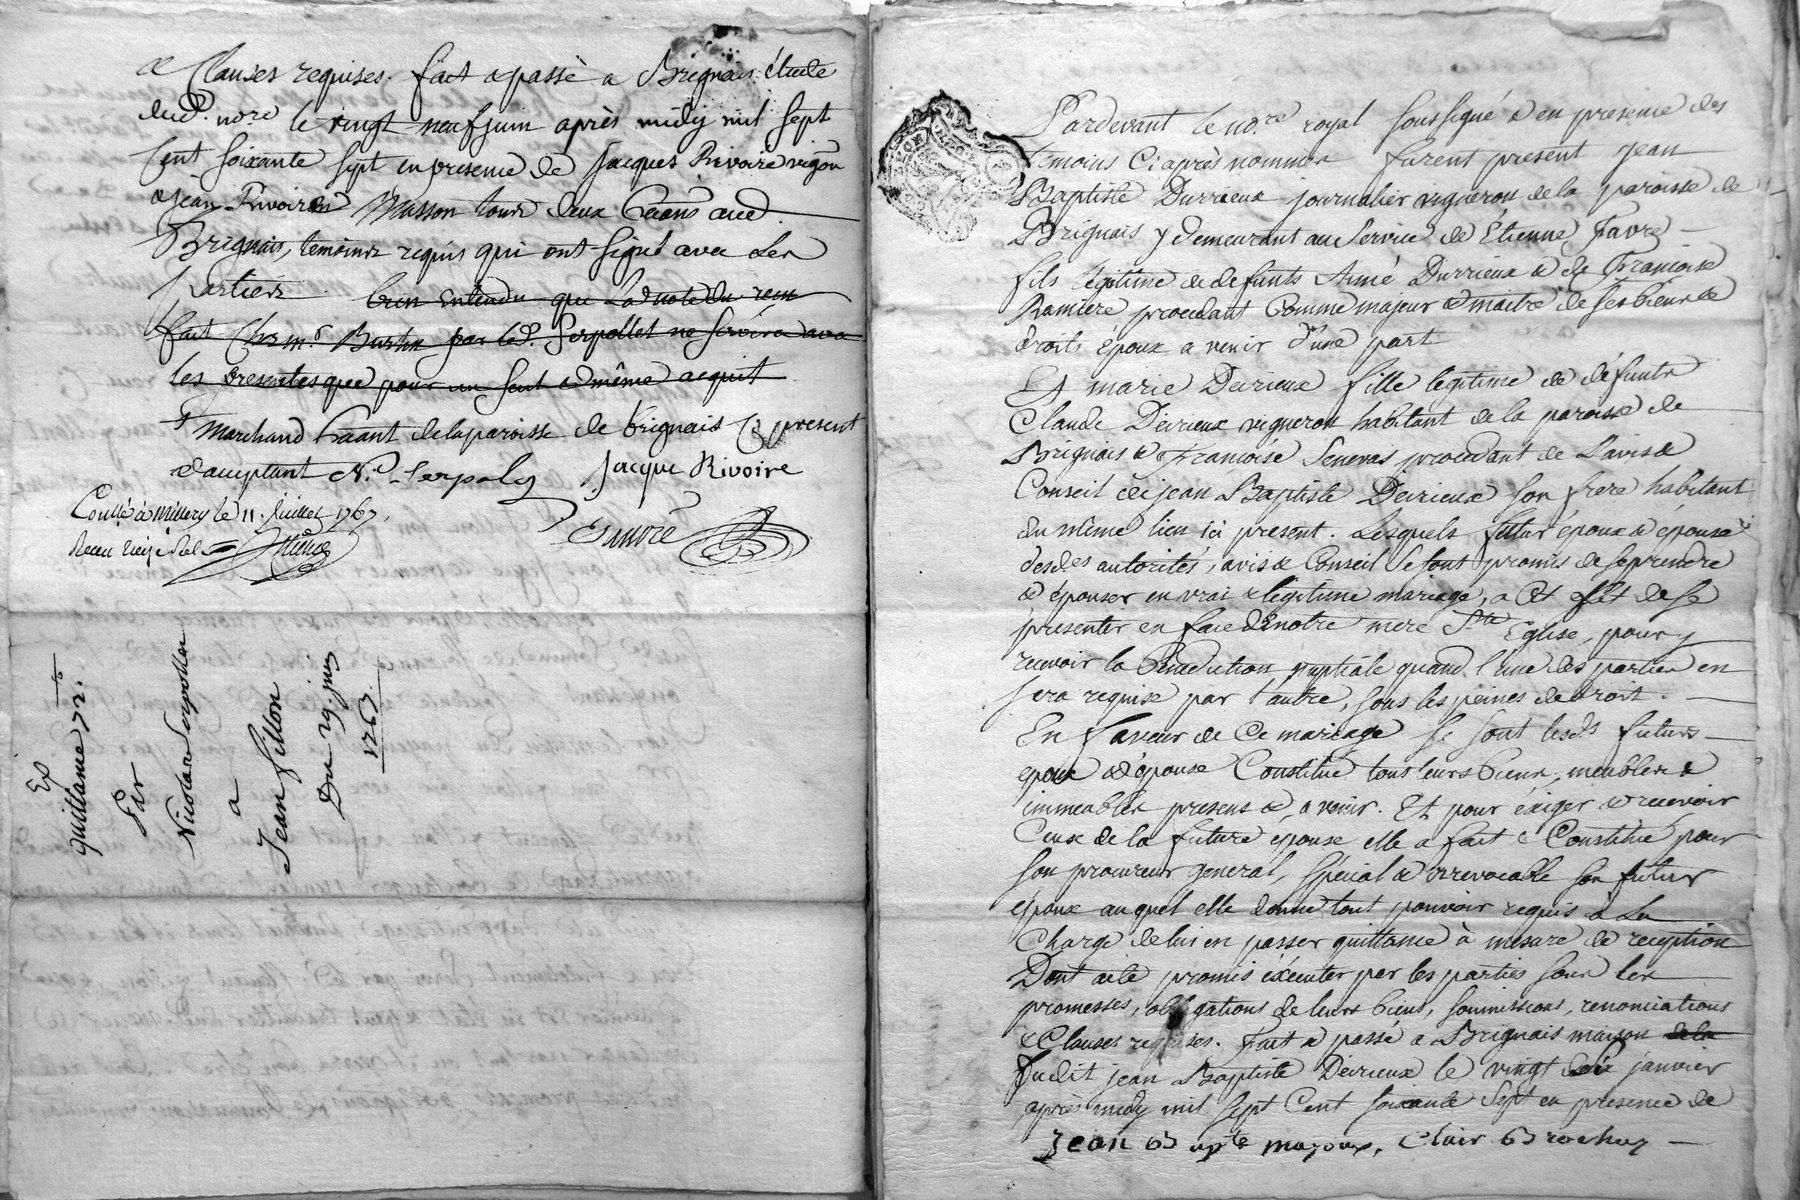 & Clauses requises. fait & passé a Brignais étude
dud. nore le vingt neuf juin après midy mil sept
Cent soixante sept en presence de Jacques Rivoire vigon
& jean Rivoire Masson tous deux hants aud.
Brignais, temoins requis qui ont signé avec les
parties bien entendu que
fait Chez mr. Burtin par led. Serpollet ne servira avec
les presentes que pour un seul & même acquit
marchand hâant de la paroisse de brignais Cy present
& acceptant Ns. Serpoley Jacque Rivoire
Collé à Millery le 11. Juillet 1767.
Receu treize sols
Ex
quittance 72.tt
Par
Nicolas Serpollet
a
Jean fillon
Du 29. juin
1767.
Pardevant le no.re royal soussigné & en presence des
temoins Ci après nommés furent present jean
Baptiste Durrieux journalier vigneron de la paroisse de
Brignais y demeurant au service de Etienne Favre
fils légitime de defunts Aimé Durrieux & de Francoise
Ramiere procedant Comme majeur & maitre de ses biens &
droits époux a venir d'une part
Et marie Deirieux fille legitime de défunts
Claude Deirieux vigneron habitant de la paroisse de
Brignais & Francoise Seneras procedant de L'avis &
Conseil de jean Baptiste Deirieux son frere habitant
du même lieu ici present. Lesquels futur époux & épouse
desdes autorités, avis & Conseil se sont promis de se prendre
& épouser en vrai & legitime mariage, a Cet effet de se
presenter en face de notre mere Ste Eglise, pour y
recevoir la Benediction nuptiale quand l'une des parties en
sera requise par l'autre, sous les peines de droit.
En faveur de Ce mariage se sont lesds futurs
epoux & épouse Constitué tous leurs biens, meubles &
immeubles presens & a venir. Et pour éxiger & recevoir
Ceux de la future épouse elle a fait & Constitué pour
son procureur general, spécial & irrevocable son futur
époux auquel elle donne tout pouvoir requis à La
Charge de lui en passer quittance à mesure de reception
Dont acte promis éxécuter par les parties sous les
promesses, obligations de leurs biens, soumissions, renonciations
& Clauses requises. Fait & passé a Brignais maison de la
fudit jean Baptiste Deirieux le vingt six janvier
après midy mil sept Cent soixante Sept en presence de
Jean Bapte mazoux, Clair Brochay